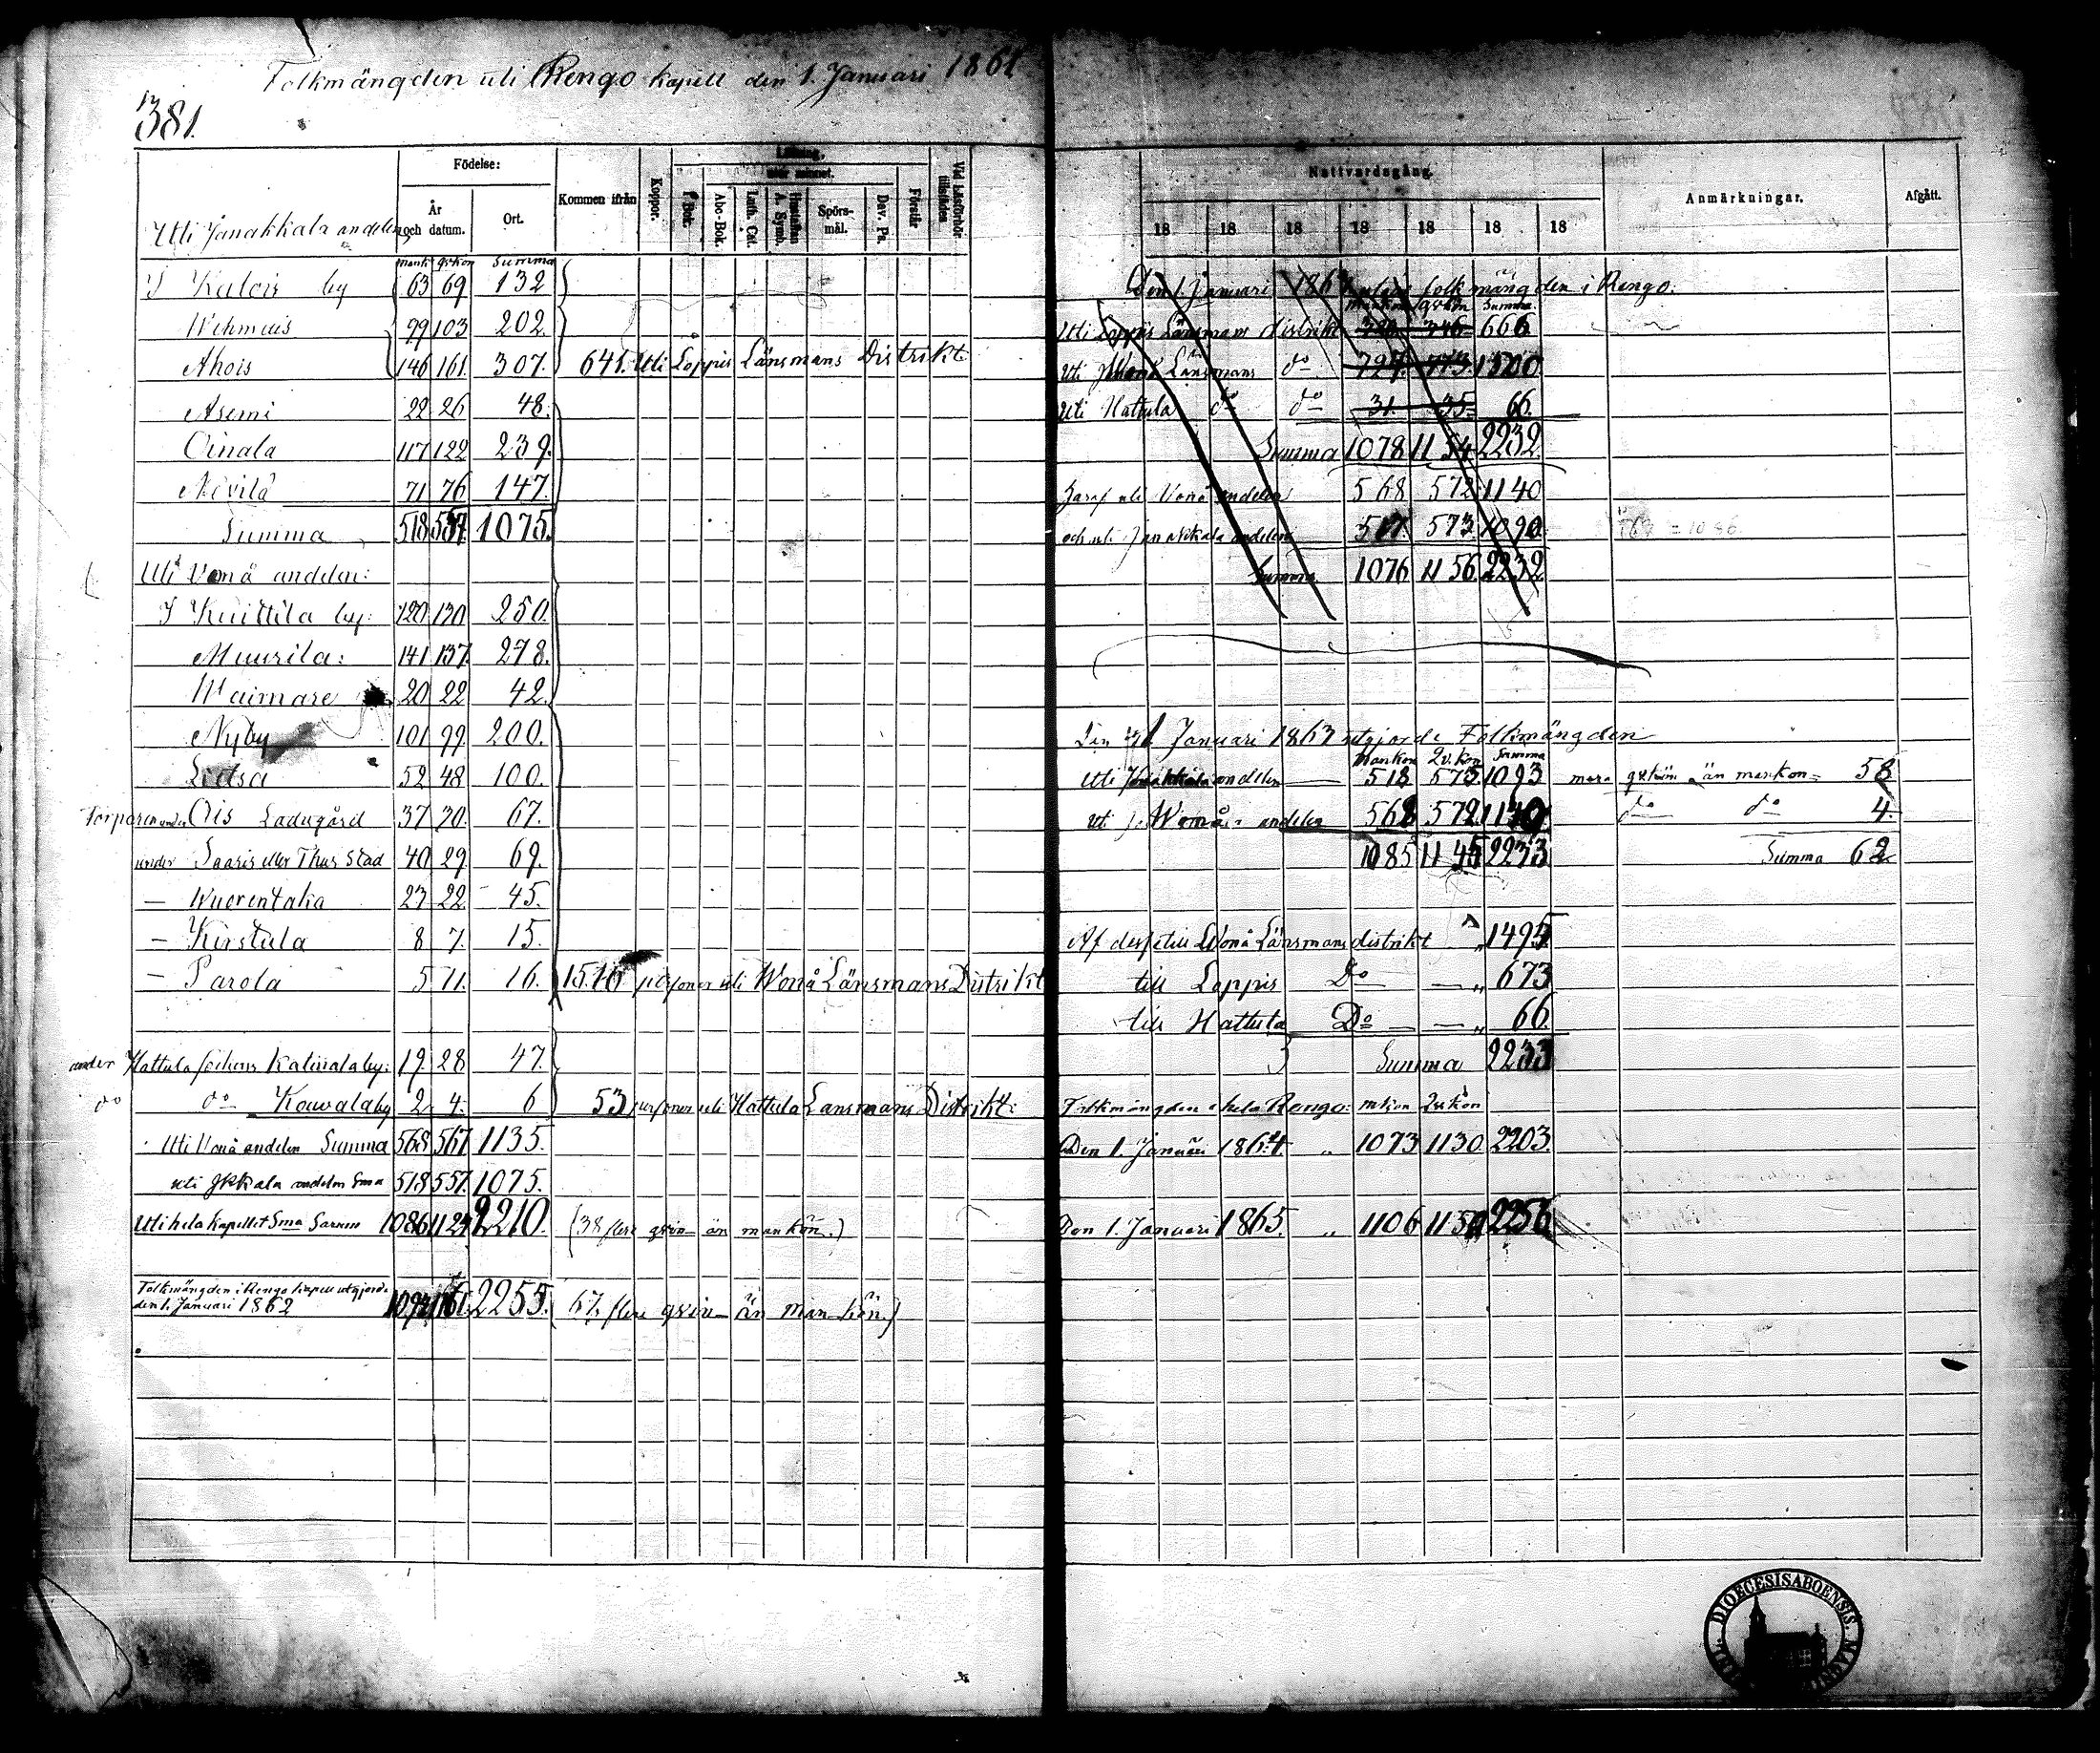 Folkmängden uti Rengo kapell den 1. Januari 1861
381.
Födelse:
År och datum.
Ort.
Kommen ifrån
Koppor.
Läsning,
utur minnet.
f Bok.
Abc-Bok.
Luth. Cat.
Hustaflan A. Symb.
Spörs-mål.
Dav. Ps.
Förstår
Vid Läsförhör tillstädes
Uti Janakkala andelen
mank qvkön Summa
I Kalois by 63 69 132
Wehmais 99 103 202.
Ahois 146 161. 307. 641. Uti Loppis Länsmans Distrikt
Asemi 22 26 48.
Oinala 117 122 239.
Nevilä 71 76 147.
Summa 518 557. 1075.
Uti Vonå andelen:
I Kuittila by: 120 130 250.
Muurila: 141 137. 278.
Waimare 20 22 42.
Nyby 101 99. 200.
Lietsa 52 48 100.
Torparen under Ois Ladugård 37 30. 67.
under Saaris eller Thurstad 40 29. 69.
— Wuorentaka 23 22 45.
— Kirstula 8 7. 15.
— Parola 5 11. 16. 1516 personer uti Wonå Länsmans Distrikt
under Hattula sockens Katinala by: 19. 28 47.
do do Kouvala by 2 4. 6 53 personer uti Hattula Länsmans Distrikt:
Uti Vonå andelen Summa 568 567 1135.
uti Jkkala andelen Sma 518 557. 1075.
Uti hela Kapellet Sma Sarum 1086 1124 2210. (38 flere qvin- än mankön.)
Folkmängden i Rengo kapell utgjorde
den 1. Januari 1862 1094 1161. 2255. (67. flere qvin- än man kön.)
Nattvardsgång.
18 18 18 18 18 18 18
Anmärkningar.
Afgått.
Den 1 Januari 186 folkmängden i Rengo.
mankön qvkön Summa
Uti Loppis Länsmans distrikt 320 346 666
uti Länsmans do 727. 773. 1500
uti Hattula do do 31. 35. 66.
Summa 1078 1154 2232
Haraf uti Vonå andelen 568 572 1140
och uti Janakkala andelen 517. 573. 1090.
Summa 1076 1156 2232
Den 1 Januari 1863 utgjorde Folkmängden
Mankön Qv. kön Summa
uti Janakkala andelen — 518 575 1093 mera qvkön än mankön = 58
uti Wonå andelen 568 572 1140 do do 4.
1085 1145 2233 Summa 62
Af dess till Wonå Länsmans distrikt „ 1495
till Loppis Do — „ 673
till Hattula Do — — „ 66.
Summa 2233
Folkmängden i hela Rengo: mkön Qvkön
Den 1. Januari 1864 „ 1073 1130 2203.
Den 1. Januari 1865. „ 1106 1150 2256
DIOECESIS ABOENSIS.